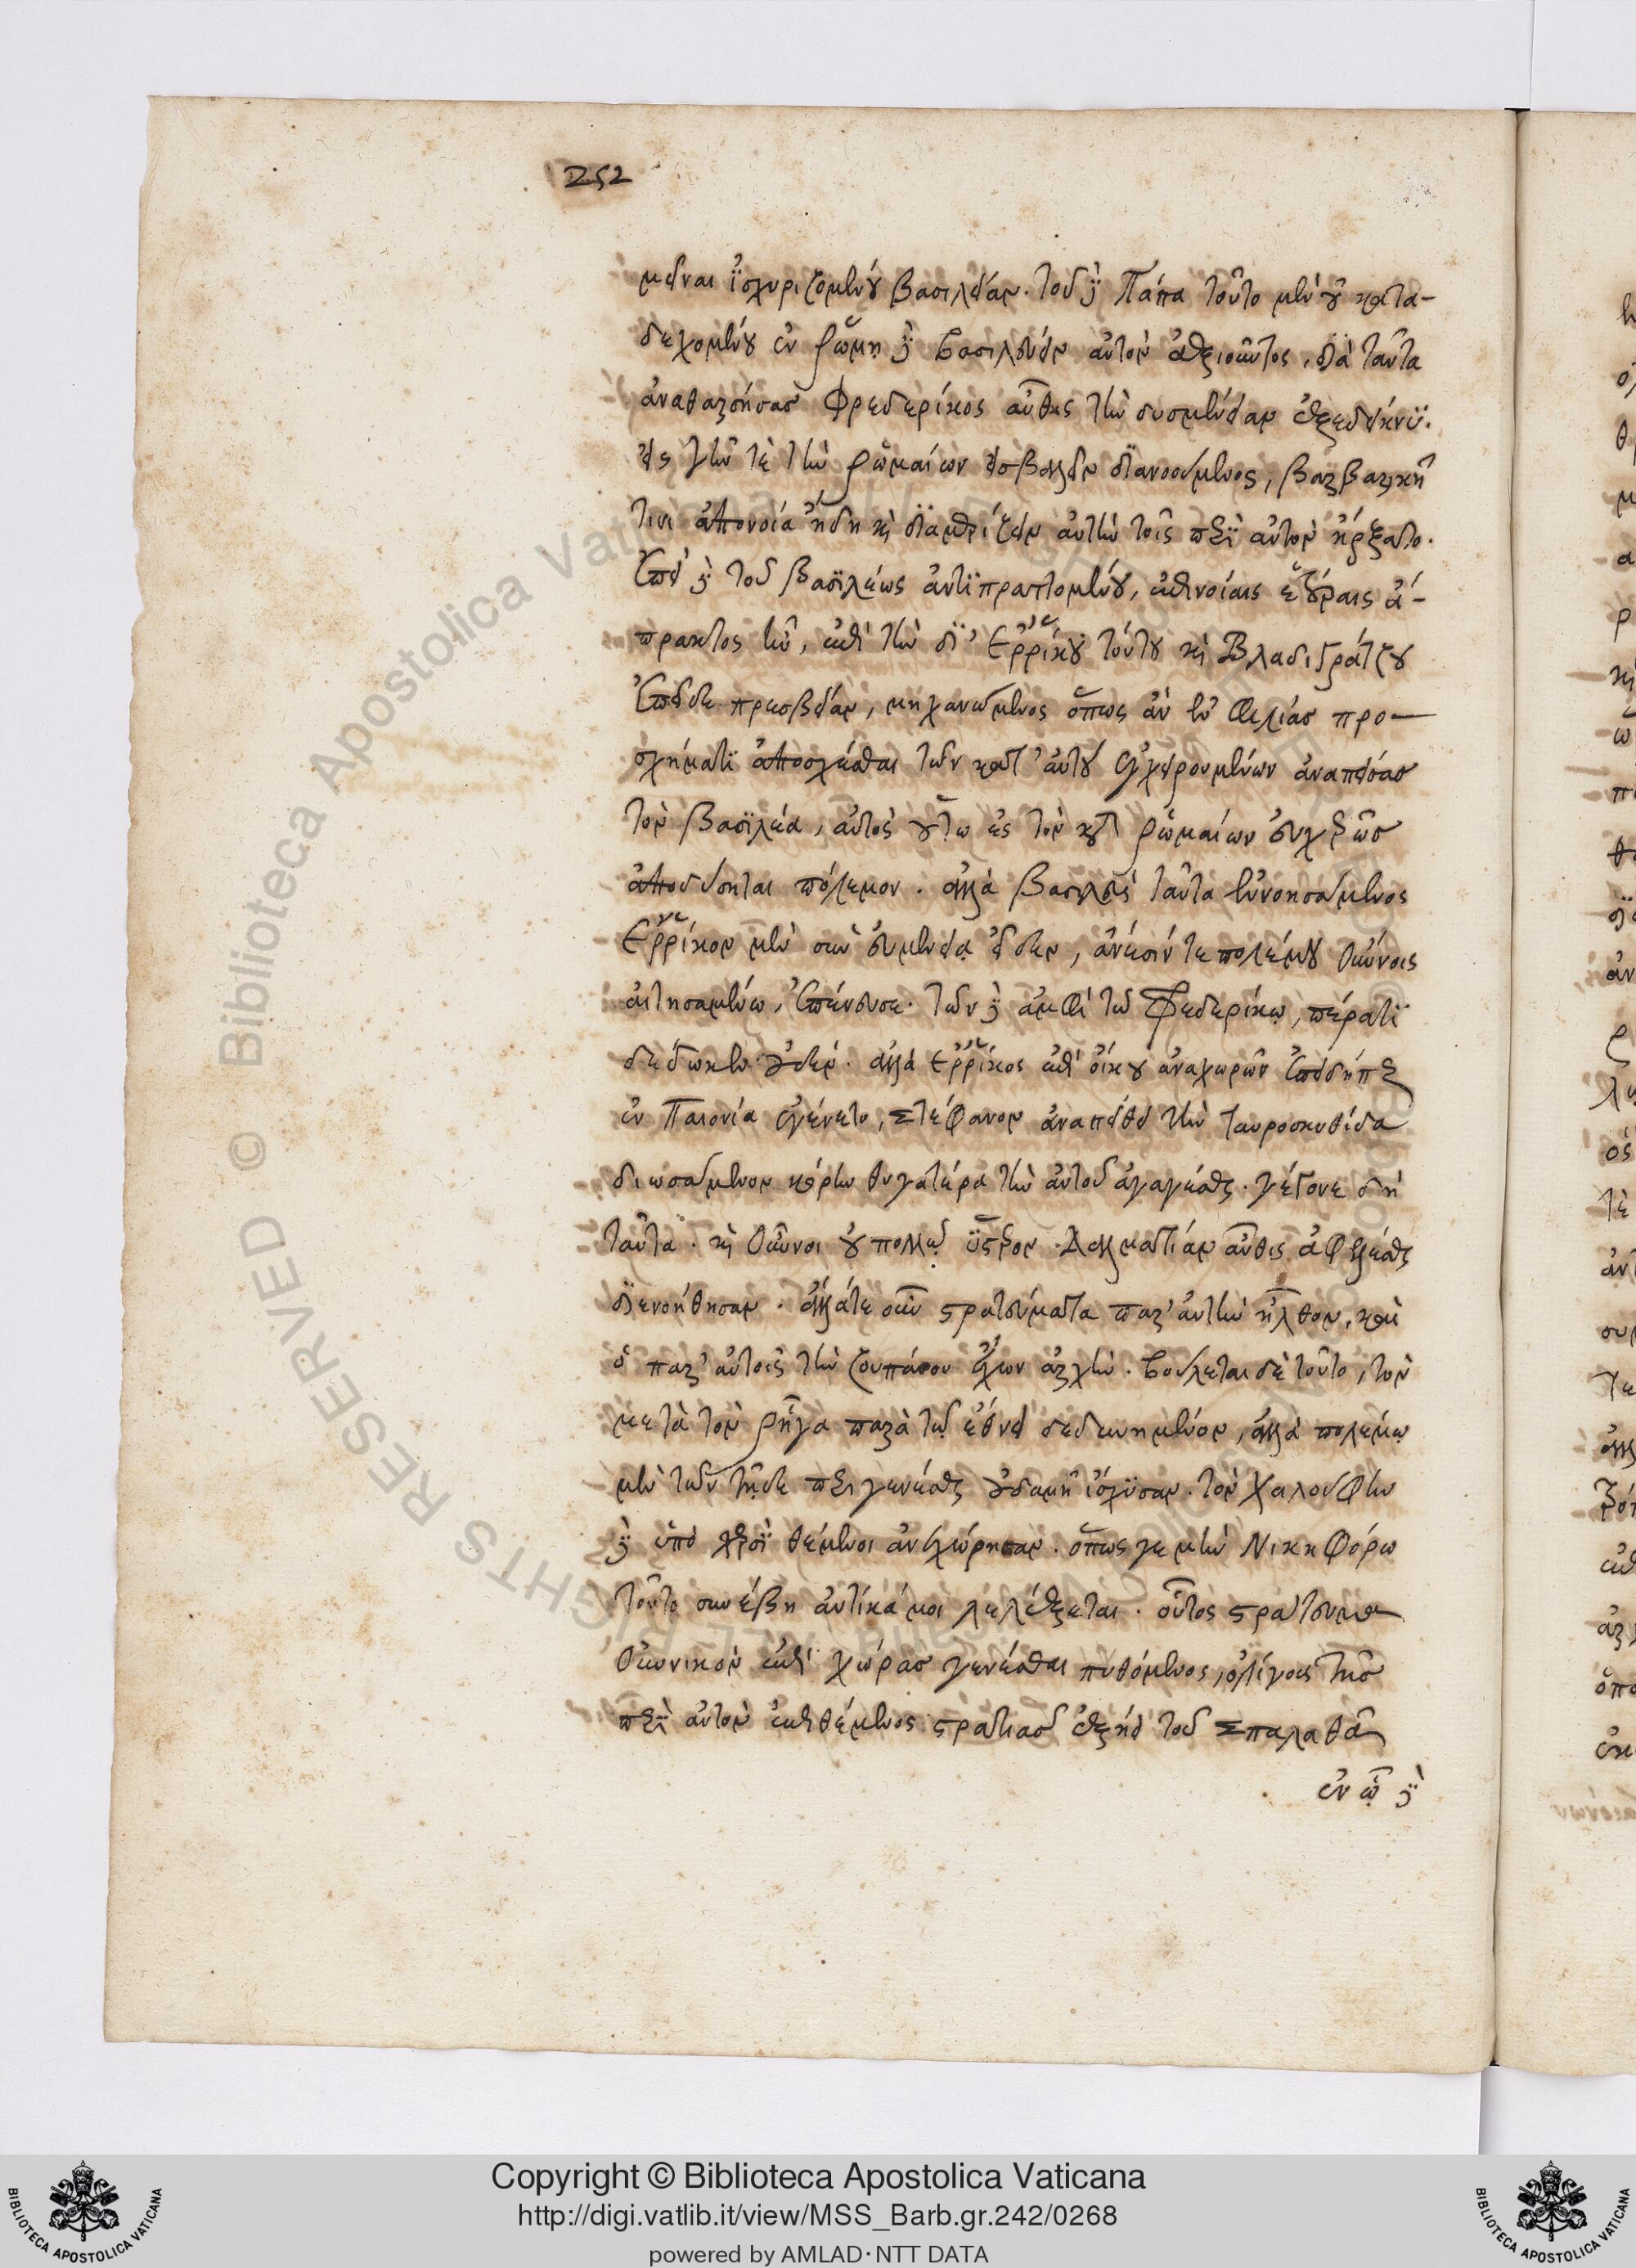 252
μεῖναι ἰσχυριζομένου βασιλείαν. τοῦ δὲ Πάπα τοῦτο μὲν οὐ κατα-
δεχομένου ἐν ῥώμῃ δὲ βασιλεύειν αὐτὸν ἀξιοῦντος, διὰ ταῦτα
ἀναθαρσήσας Φρεδερίκος αὖθις τὴν δυσμένειαν ἐξεδείκνυ.
εἰς γῆν τε τὴν ῥωμαίων ἐσβαλεῖν διανοούμενος, βαρβαρικῇ
τινι ἀπονοίᾳ ἤδη καὶ διαμερίζειν αὐτὴν τοῖς περὶ αὐτὸν ἤρξατο.
ἐπεὶ δὲ τοῦ βασιλέως ἀντιπραττομένου, ἐπινοίαις ἑτέραις ἄ-
πρακτος ἦν, ἐπὶ τὴν δι' Ἐρρίκου τούτου καὶ Βλαδισράτζου
πρεσβείαν, μηχανώμενος ὅπως ἂν ἐν φιλίας προ-
σχήματι ἀποσχέσθαι τῶν κατ' αὐτοῦ ἐγχειρουμένων ἀναπείσας
τὸν βασιλέα, αὐτὸς οὕτω ἐς τὸν κατὰ ῥωμαίων συχνῶς
ἀποδύσηται πόλεμον. ἀλλὰ βασιλεὺς ταῦτα ἐννοησάμενος
Ἐρρίκον μὲν σὺν εὐμενείᾳ εἶδεν, ἀνεσίν τε πολέμου Οὔννοις
αἰτησαμένῳ, ἐπένευσε. τῶν δὲ ἀμφὶ τῷ Φεδερίκῳ, πέρατι
δέδωκεν οὐδέν. ἀλλὰ Ἐρρίκος ἐπ' οἴκου ἀναχωρῶν ἐπειδήπερ
ἐν Παιονίᾳ ἐγένετο, Στέφανον ἀναπείθει τὴν ταυροσκυθίδα
διωσάμενον κόρην θυγατέρα τὴν αὐτοῦ ἀγαγέσθαι. γέγονε δὴ
ταῦτα. καὶ Οὖννοι οὐ πολλῷ ὕστερον. Δαλματίαν αὖθις ἀφελέσθαι
διενοήθησαν. ἄλλα τε οὖν στρατεύματα παρ' αὐτὴν ἦλθον, καὶ
ὁ παρ' αὐτοῖς τὴν ζουπάνου ἔχων ἀρχήν. βούλεται δὲ τοῦτο, τὸν
μετὰ τὸν ῥῆγα παρὰ τῷ ἔθνει δεδυνημένον, ἀλλὰ πολέμῳ
μὲν τῶν τῇδε περιγενέσθαι οὐδαμῆ ἴσχυσαν. τὸν Χαλούφην
δὲ ὑπὸ χερσὶ θέμενοι ἀνεχώρησαν. ὅπως γε μὴν Νικηφόρῳ
τοῦτο συνέβη αὐτίκα μοι λελέξεται. οὗτος στράτευμα
Οὐννικὸν ἐπὶ χώρας γενέσθαι πυθόμενος, ὀλίγοις τῆς
περὶ αὐτὸν ἐπιθέμενος στρατιᾶς ἐξῄει τοῦ Σπαλαθᾶ
ἐν ᾧ δὲ
Copyright © Biblioteca Apostolica Vaticana
http://digi.vatlib.it/view/MSS_Barb.gr.242/0268
powered by AMLAD·NTT DATA